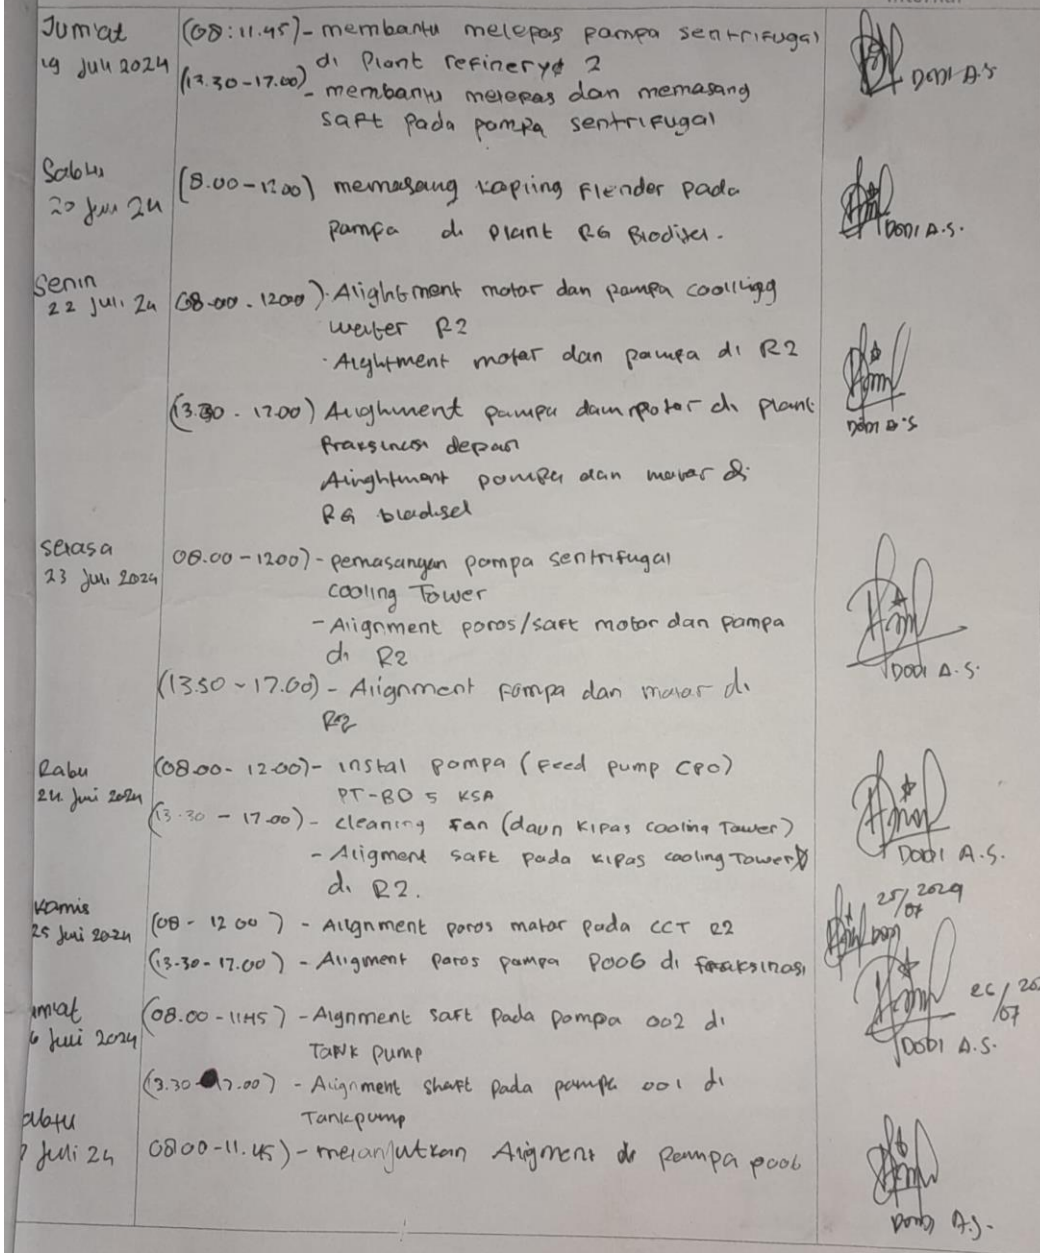 Jum'at (08:11.45) - membantu melepas pampa sentrifugal
19 Juli 2024 di Plant refinery 2
DODI A.S
(13.30-17.00) - membantu melepas dan memasang
saft pada pompa sentrifugal
Sabtu
20 Juli 24 (8.00-1200) memasang kopling Flender pada
pampa di Plant RG Biodisel.
DODI A.S.
Senin
22 Juli 24 (08-00-1200) · Alightment motor dan pampa coollingg
water R2
· Alightment motor dan pampa di R2
(13.30 - 17.00) Alighment pampa dam motor di plant
DODI A.S
Fraksinasi depan
Alinghtment pompa dan motor di
RG biodisel
Selasa
23 Juli 2024 08.00-1200) - pemasangan pompa sentrifugal
cooling Tower
- Alignment poros/saft motor dan pampa
di R2
DODI A.S.
(13.50 - 17.00) - Alignment pompa dan motor di
R2
Rabu (08.00 - 12.00) - instal pompa (Feed pump CPO)
24 Juni 2024 PT-BD 5 KSA
(13.30 - 17.00) - cleaning fan (daun kipas cooling Tower)
- Aligment saft pada kipas cooling Tower
DODI A.S.
di R2.
25/07 2024
Kamis
25 Juni 2024 (08 - 12 00) - Alignment poros motor pada CCT R2
(13.30-17.00) - Aligment Poros pampa P006 di fraksinasi
26/07 202
umat
6 Juli 2024 (08.00-11.45) - Alignment saft pada pompa 002 di
Tank pump
DODI A.S.
(13.30 17.00) - Alignment shaft pada pampa 001 di
Tankpump
abtu
7 Juli 24 08.00-11.45) - melanjutkan Aligment di pampa p006
Dodi A.S.